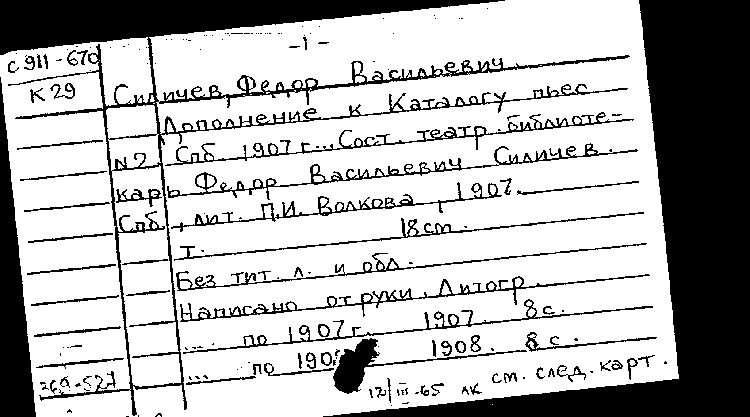 -1-
С 911-670
К 29
Силичев, Федор Васильевич.
Дополнение к Каталогу пьес
N2 Спб 1907 г... Сост. театр. библиоте-
карь Федор Васильевич Силичев.
Спб., лит. П.И. Волкова, 1907.
т. 18 cm.
Без тит. л. и обл.
Написано от руки. Литогр.
... по 1907 г. 1907. 8 с.
... по 190 1908. 8 с.
269-527
12/III-65 лк см. след. карт.